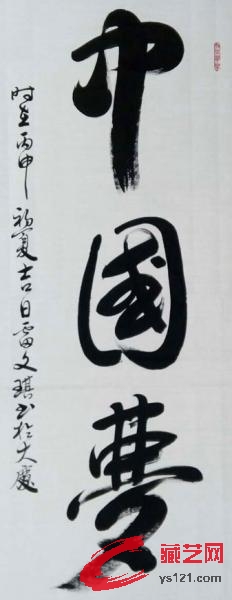 中國夢
时在丙申初夏吉日雷文琪书於大厦
藏艺网
ys121.com